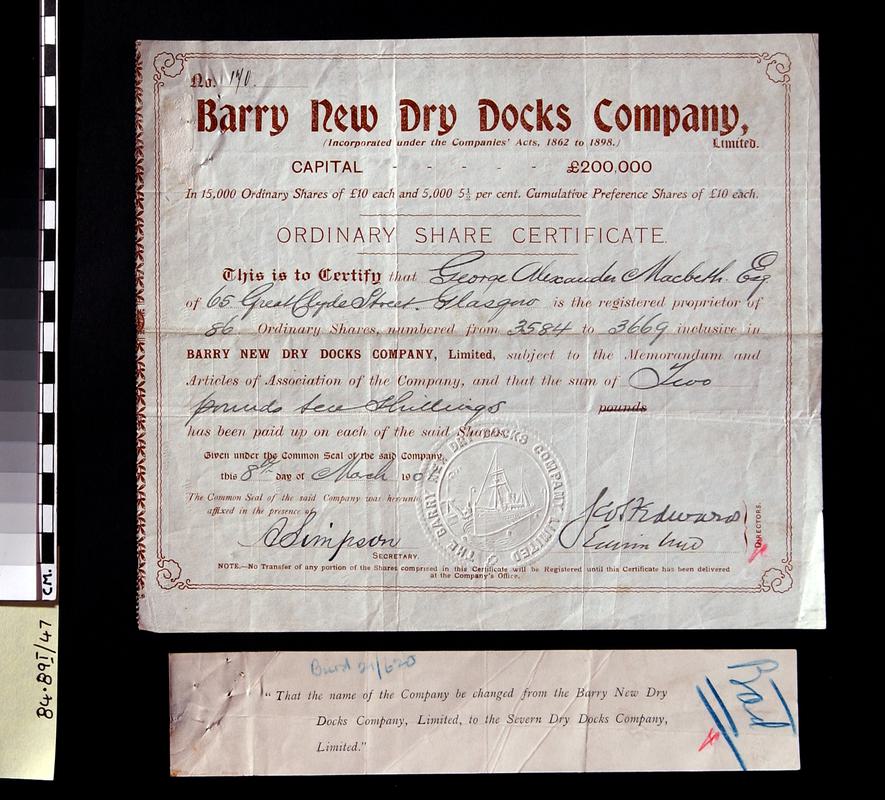 No. 170.
Barry New Dry Docks Company,
(Incorporated under the Companies' Acts, 1862 to 1898.) Limited.
CAPITAL - - - - - £200,000
In 15,000 Ordinary Shares of £10 each and 5,000 5½ per cent. Cumulative Preference Shares of £10 each.
ORDINARY SHARE CERTIFICATE.
This is to Certify that George Alexander Macbeth Esq
of 65 Great Clyde Street. Glasgow is the registered proprietor of
86 Ordinary Shares, numbered from 3584 to 3669 inclusive in
BARRY NEW DRY DOCKS COMPANY, Limited, subject to the Memorandum and
Articles of Association of the Company, and that the sum of Two
pounds ten Shillings pounds
has been paid up on each of the said Shares.
Given under the Common Seal of the said Company,
this 8th day of March 190
The Common Seal of the said Company was hereunto
affixed in the presence of
THE BARRY NEW DRY DOCKS COMPANY LIMITED
Simpson
SECRETARY.
Edwards
DIRECTORS.
NOTE.—No Transfer of any portion of the Shares comprised in this Certificate will be Registered until this Certificate has been delivered
at the Company's Office.
CM.
84.89I/47
"That the name of the Company be changed from the Barry New Dry
Docks Company, Limited, to the Severn Dry Docks Company,
Limited."
Bad